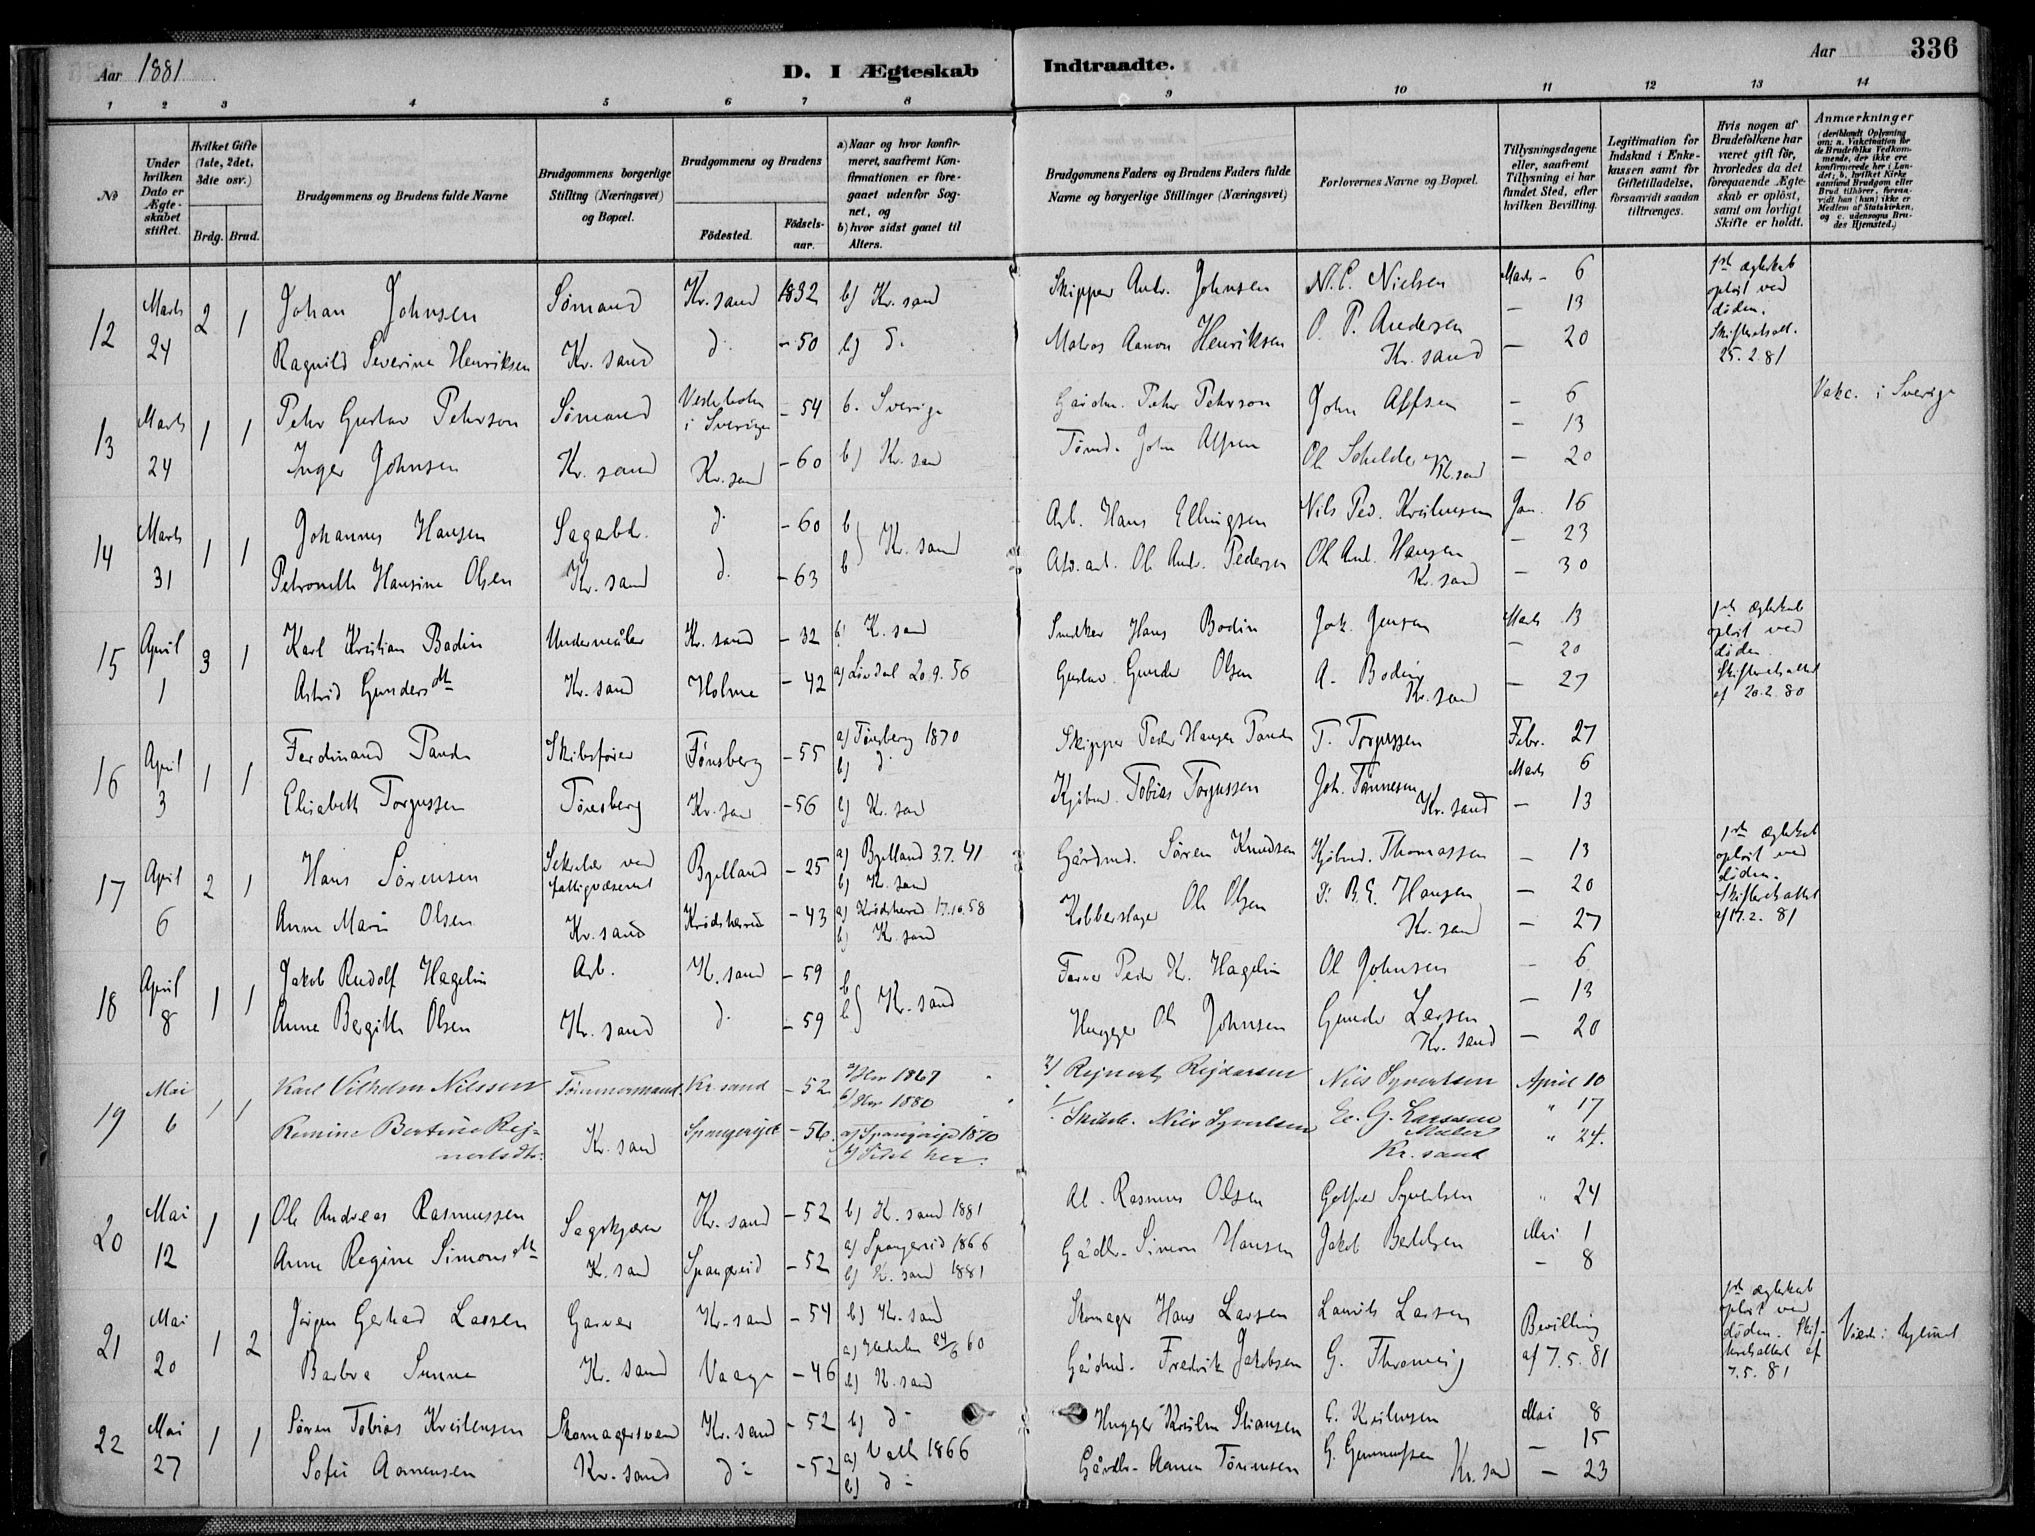 Aar 1881
D. I Ægteskab Indtraadte.
Aar
336
1 2 3 4 5 6 7 8 9 10 11 12 13 14
№
Under hvilken Dato er Ægteskabet stiftet.
Hvilket Gifte (1ste, 2det, 3die osv.)
Brdg. Brud.
Brudgommens og Brudens fulde Navne
Brudgommens borgerlige Stilling (Næringsvei) og Bopæl.
Brudgommens og Brudens
Födested.
Födselsaar.
a) Naar og hvor konfirmeret, saafremt Konfirmationen er foregaaet udenfor Sognet, og
b) hvor sidst gaaet til Alters.
Brudgommens Faders og Brudens Faders fulde Navne og borgerlige Stillinger (Næringsvei)
Forlovernes Navne og Bopæl.
Tillysningsdagene eller, saafremt Tillysning ei har fundet Sted, efter hvilken Bevilling.
Legitimation for Indskud i Enkekassen samt for Giftetilladelse, forsaavidt saadan tiltrænges.
Hvis nogen af Brudefolkene har været gift för, hvorledes da det foregaaende Ægteskab er oplöst, samt om lovligt Skifte er holdt.
Anmærkninger
(deriblandt Oplysning om: a. Vaksination for de Brudefolks Vedkommende, der ikke ere konfirmerede her i Landet; b. hvilket Kirkesamfund Brudgom eller Brud tilhörer, forsaavidt han (hun) ikke er Medlem af Statskirken, og c. udensogns Brudes Hjemsted.)
12 Marts 24 2 1
Johan Johnsen Sømand Kr.sand 1832 b) Kr. sand Skipper Andr. Johnsen N. C. Nielsen Marts – 6
– 13
Ragnild Severine Henriksen Kr. sand d. – 50 b) d. Matros Aanon Henriksen O. P. Andersen Kr. sand – 20
1ste Ægteskab opløst ved døden. 25.2.81
13 Marts 24 1 1
Pehr Gustav Pehrson Sømand i Sverige – 54 b. Sverige Pehr Pehrson John Alfsen – 6
– 13
Inger Johnsen Kr. sand Kr. sand – 60 b) Kr. san Tømd. John Alfsen – 20
Vakc. i Sverige
14 Marts 31 1 1
Johannes Hansen Sagarb. d. – 60 b Arb. Hans Ellingsen Nils Ped. Kristensen Jan. 16
} Kr. sand – 23
Petronelle Hansine Olsen Kr. sand d. – 63 b Ole Andr. Pedersen Ole And. Hansen Kr. sand – 30
15 April 1 3 1
Karl Kristian Bodin Undermåler Kr. sand – 32 b) K. sand Snedker Hans Bodin Jak. Jensen Marts 13
– 20
Astrid Gundersdtr Kr. sand Holme – 42 a) 20.9.56 Gustav Gunder Olsen A. Boding Kr. sand – 27
1ste Ægteskab opløst ved døden. af 20.2.80
16 April 3 1 1
Ferdinand Pande Skibsfører Tønsberg – 55 a) Tønsberg 1870 b) d. Skipper Peder Hansen Pande T. Torgussen Febr. 27
Marts 6
Elisabeth Torgussen Tønsberg Kr. san – 56 b) Kr. san Kjøbmd. Tobias Torgussen Joh. Tønnesen Kr. sand – 13
17 April 6 2 1
Hans Sørensen Sekretær ved fattigvæsenet Bjelland – 25 a) Bjelland 3.7.41 b) Kr. sand Gårdmd. Søren Knudsen Kjøbmd. Thomassen – 13
– 20
Anne Marie Olsen Kr. sand Krødsherred – 43 a) Krødsherred 17.10.58 b) Kr. sand Kobberslager Ole Olsen B. E. Hansen Kr. sand – 27
1ste Ægteskab opløst ved døden. af 17.2.81
18 April 8 1 1
Jakob Rudolf Hagelin Arb. K. sand – 59 b Farver Peder K. Hagelin Ole Johnsen – 6
} Kr. sand – 13
Anne Bergitte Olsen Kr. sand d. – 59 b Hugger Ole Johnsen Gunder Larsen Kr. sand – 20
19 Mai 6 1 1
Karl Vilhelm Nilssen Tømmermand Kr. sand – 52 a) Her 1867 b) Her 1880 2) Rejnert Rejdersen Niels Syvertsen April 10
" 17
Remine Bertine Rejnertsdtr. Kr. sand Spangereid – 56. a) Spangereid 1870 b) Sidst her. 1) Niels Syvertsen G. Larsen Maler Kr. sand " 24.
20 Mai 12 1 1
Ole Andreas Rasmussen Sagskjærer Kr. sand – 52 b) K. sand 1881 Rasmus Olsen Syvertsen " 24
Mai 1
Anne Regine Simonsdtr K. sand Spangereid – 52 a) Spangereid 1866 b) K. sand 1881 Simon Hansen Jakob Berthelsen – 8
21 Mai 20 1 2
Jørgen Gerhard Larsen Garver Kr. sand – 54 b) Kr. sand Skomager Hans Larsen Laurits Larsen Bevilling
Barbra Sunne Kr. sand Vaage – 46 a) 24/6 60 b) K. sand Gårdmd. Fredrik Jakobsen G. af 7.5.81
1ste Ægteskab opløst ved døden. af 7.5.81
22 Mai 27 1 1
Søren Tobias Kristensen Skomagersvend Kr. sand – 52 b) d. Hugger C. Kristensen Mai 8
– 15
Sofie Aanensen Kr. sand d. – 52 a) 1866 b) d. Aanen Tønnesen G. Gunnufsen Kr. san – 23